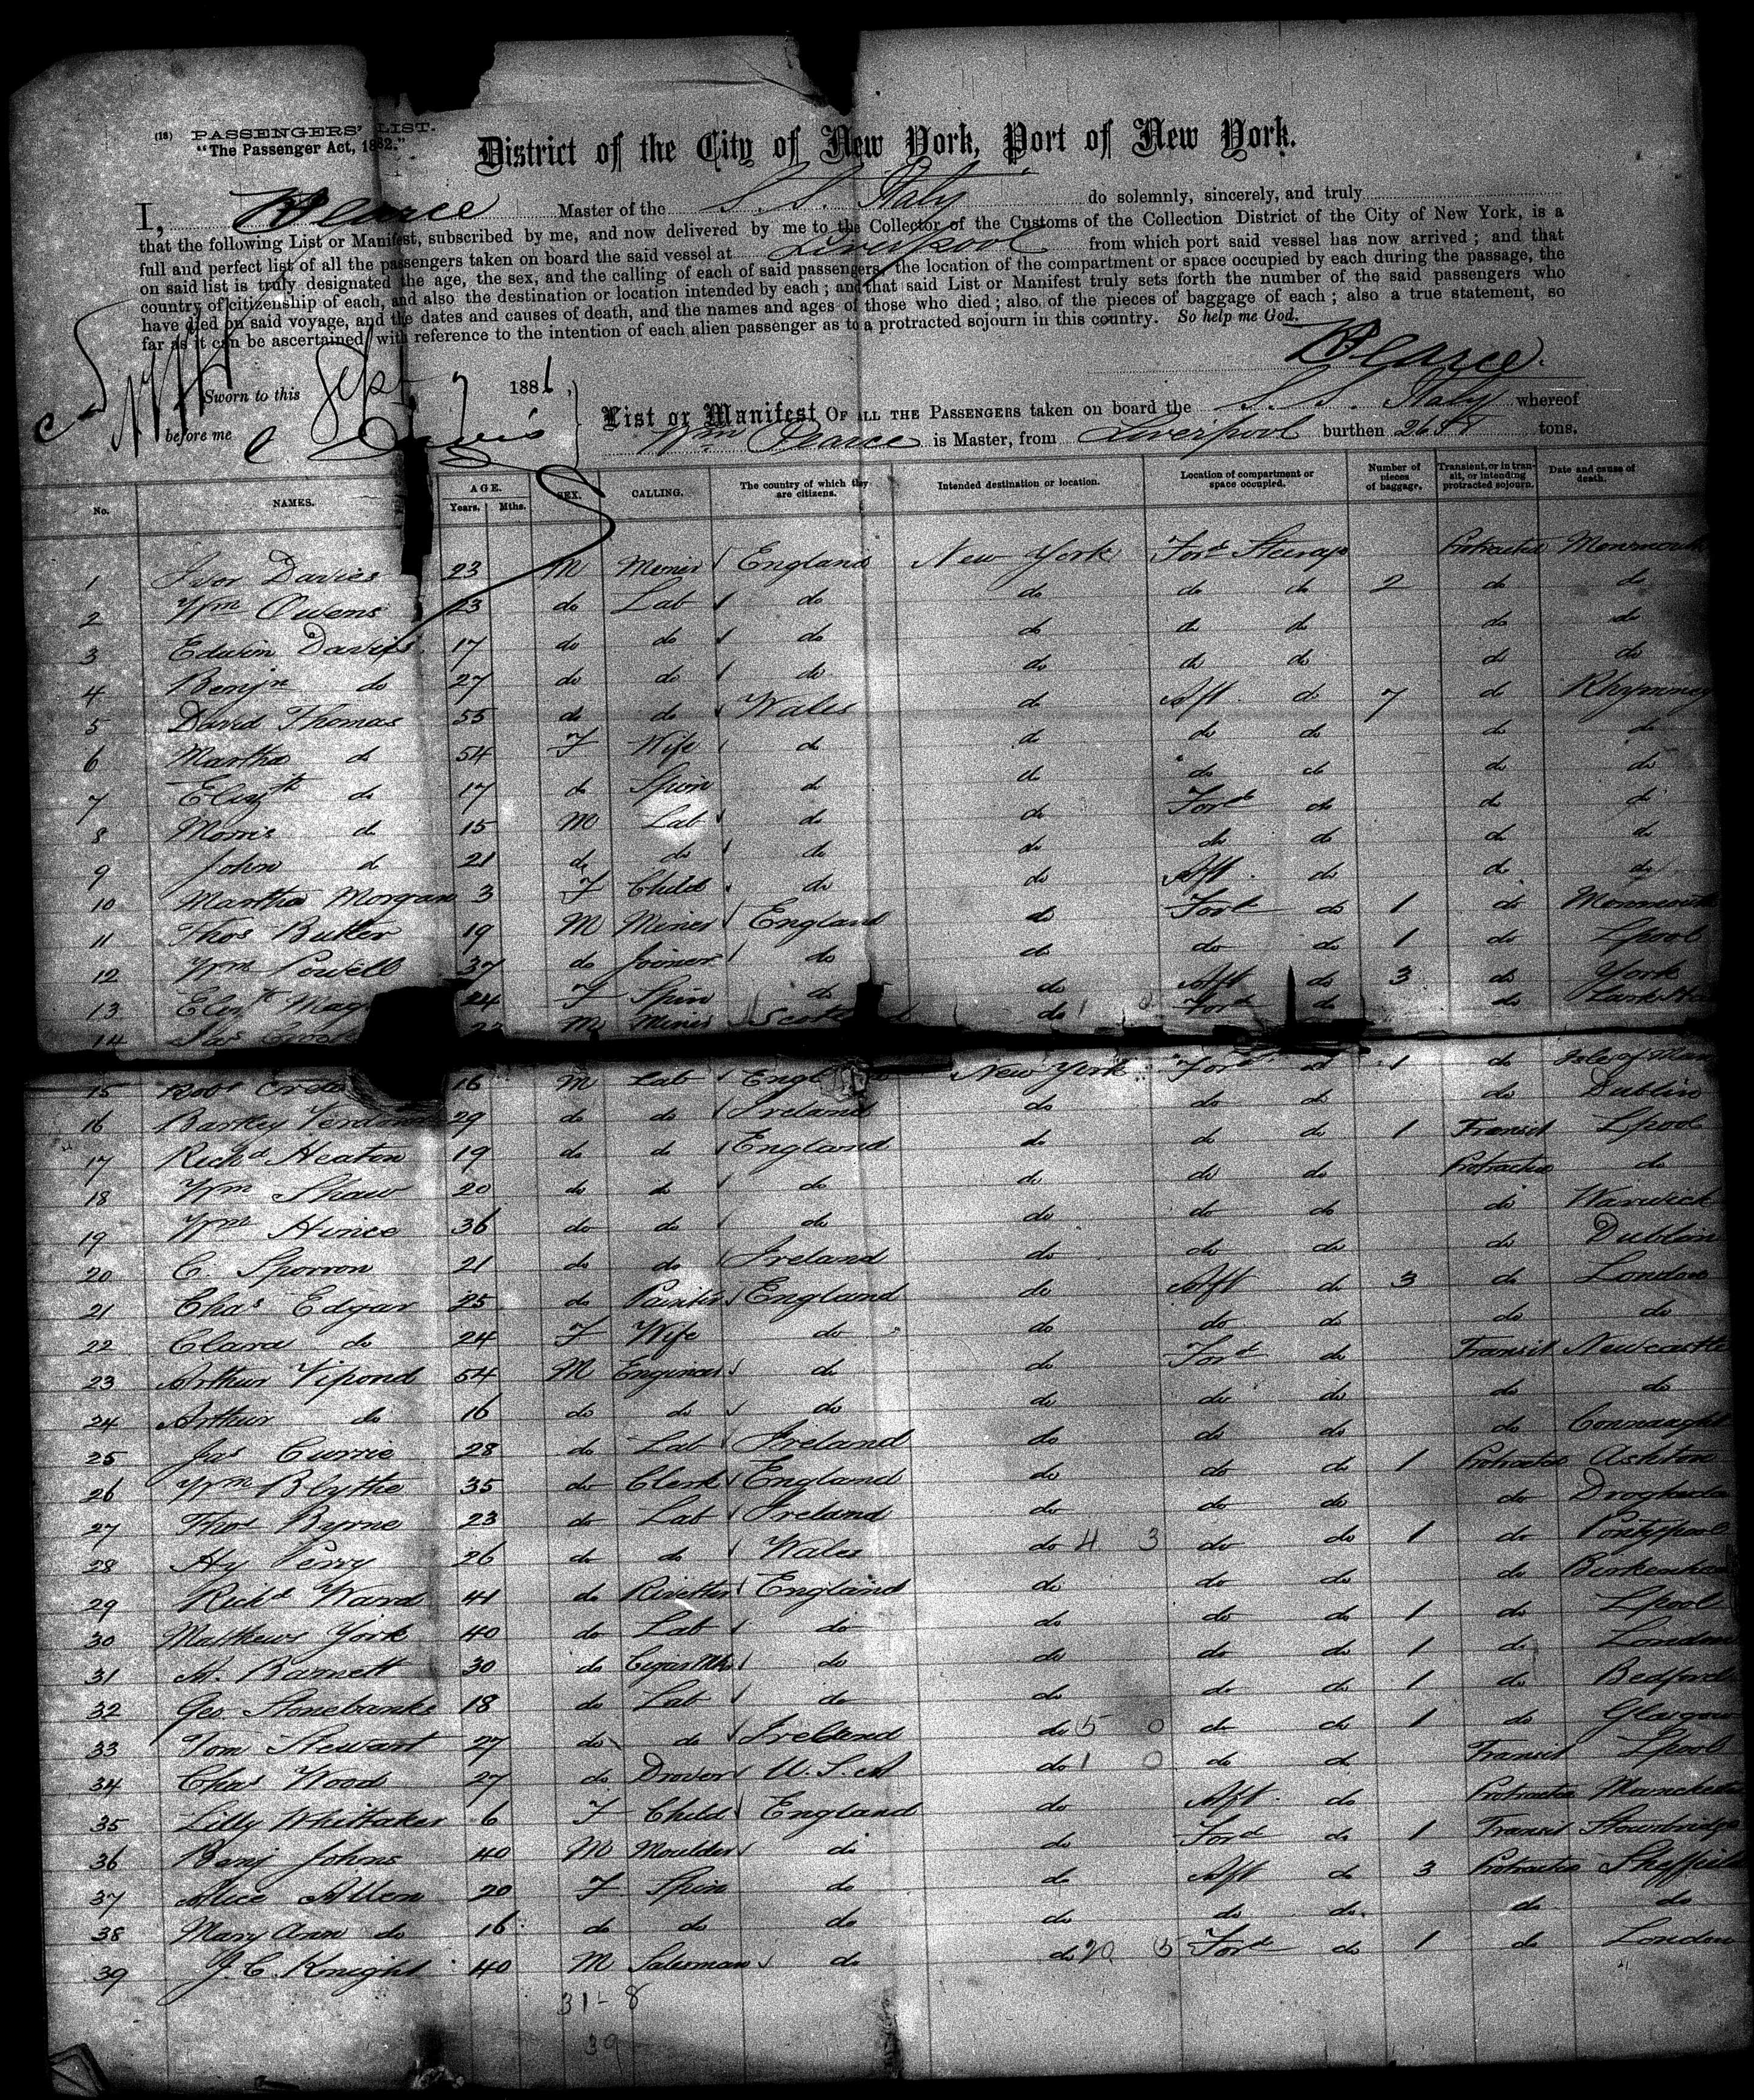 (18) PASSENGERS' LIST.
"The Passenger Act, 1882."
District of the City of New York, Port of New York.
I, Wm Pearce Master of the S. S. Italy do solemnly, sincerely, and truly
that the following List or Manifest, subscribed by me, and now delivered by me to the Collector of the Customs of the Collection District of the City of New York, is a
full and perfect list of all the passengers taken on board the said vessel at Liverpool from which port said vessel has now arrived; and that
on said list is truly designated the age, the sex, and the calling of each of said passengers, the location of the compartment or space occupied by each during the passage, the
country of citizenship of each, and also the destination or location intended by each; and that said List or Manifest truly sets forth the number of the said passengers who
have died on said voyage, and the dates and causes of death, and the names and ages of those who died; also, of the pieces of baggage of each; also a true statement, so
far as it can be ascertained, with reference to the intention of each alien passenger as to a protracted sojourn in this country. So help me God.
Wm Pearce.
Sworn to this Sept 7 1886,
before me C Davis
List or Manifest OF ALL THE PASSENGERS taken on board the S. S. Italy whereof
Wm Pearce is Master, from Liverpool burthen tons.
No. NAMES. AGE. Years. Mths. SEX. CALLING. The country of which they are citizens. Intended destination or location. Location of compartment or space occupied. Number of pieces of baggage. Transient, or in transit, or intending protracted sojourn. Date and cause of death.
1 Ivor Davies 23 M Miner England New York Ford Steerage Protracted Monmouth
2 Wm Owens 23 do Lab do do do do 2 do do
3 Edwin Davies 17 do do do do do do do do
4 Benjn do 27 do do do do do do do do
5 David Thomas 55 do do Wales do Aft do 7 do Rhymney
6 Martha do 54 F Wife do do do do do do
7 Elizth do 17 do Spin do do do do do do
8 Morris do 15 M Lab do do Ford do do do
9 John do 21 do do do do do do do do
10 Martha Morgan 3 F Child do do Aft do do do
11 Thos Butler 19 M Miner England do Ford do 1 do Monmouth
12 Wm Powell 37 do Joiner do do do do 1 do Lpool
13 Elizth 24 F Spin do do Aft do 3 do York
14 Jas M Miner do 1 Ford do do
15 Robt 16 M Lab England New York Ford do 1 do Isle of Man
16 Bartley 29 do do Ireland do do do do Dublin
17 Richd Heaton 19 do do England do do do 1 Transit Lpool
18 Wm Shaw 20 do do do do do do Protracted do
19 Wm Hince 36 do do do do do do do Warwick
20 C. Sporron 21 do do Ireland do do do do Dublin
21 Chas Edgar 25 do Painter England do Aft do 3 do London
22 Clara do 24 F Wife do do do do do do
23 Arthur Vipond 54 M Engineer do do Ford do Transit Newcastle
24 Arthur do 16 do do do do do do do do
25 Jas Currie 28 do Lab Ireland do do do do Connaught
26 Wm Blythe 35 do Clerk England do do do 1 Protracted Ashton
27 Thos Byrne 23 do Lab Ireland do do do do Drogheda
28 Hy Perry 26 do do Wales do 4 3 do do 1 do Pontypool
29 Richd Ward 41 do Rivetter England do do do do Birkenhead
30 Matthews York 40 do Lab do do do do 1 do Lpool
31 A. Barnett 30 do Cigar Mkr do do do do 1 do London
32 Geo Stonebanks 18 do Lab do do do do 1 do Bedford
33 Tom Stewart 27 do do Ireland do 5 0 do do 1 do Glasgow
34 Chas Wood 27 do Drover U.S.A do 1 0 do do Transit Lpool
35 Lilly Whittaker 6 F Child England do Aft do Protracted Manchester
36 Benj Johns 40 M Moulder do do Ford do 1 Transit Stourbridge
37 Alice Allen 20 F Spin do do Aft do 3 Protracted Sheffield
38 Mary Ann do 16 do do do do do do do do
39 J. C. Knight 40 M Salesman do do 20 5 Ford do 1 do London
31 - 8
39